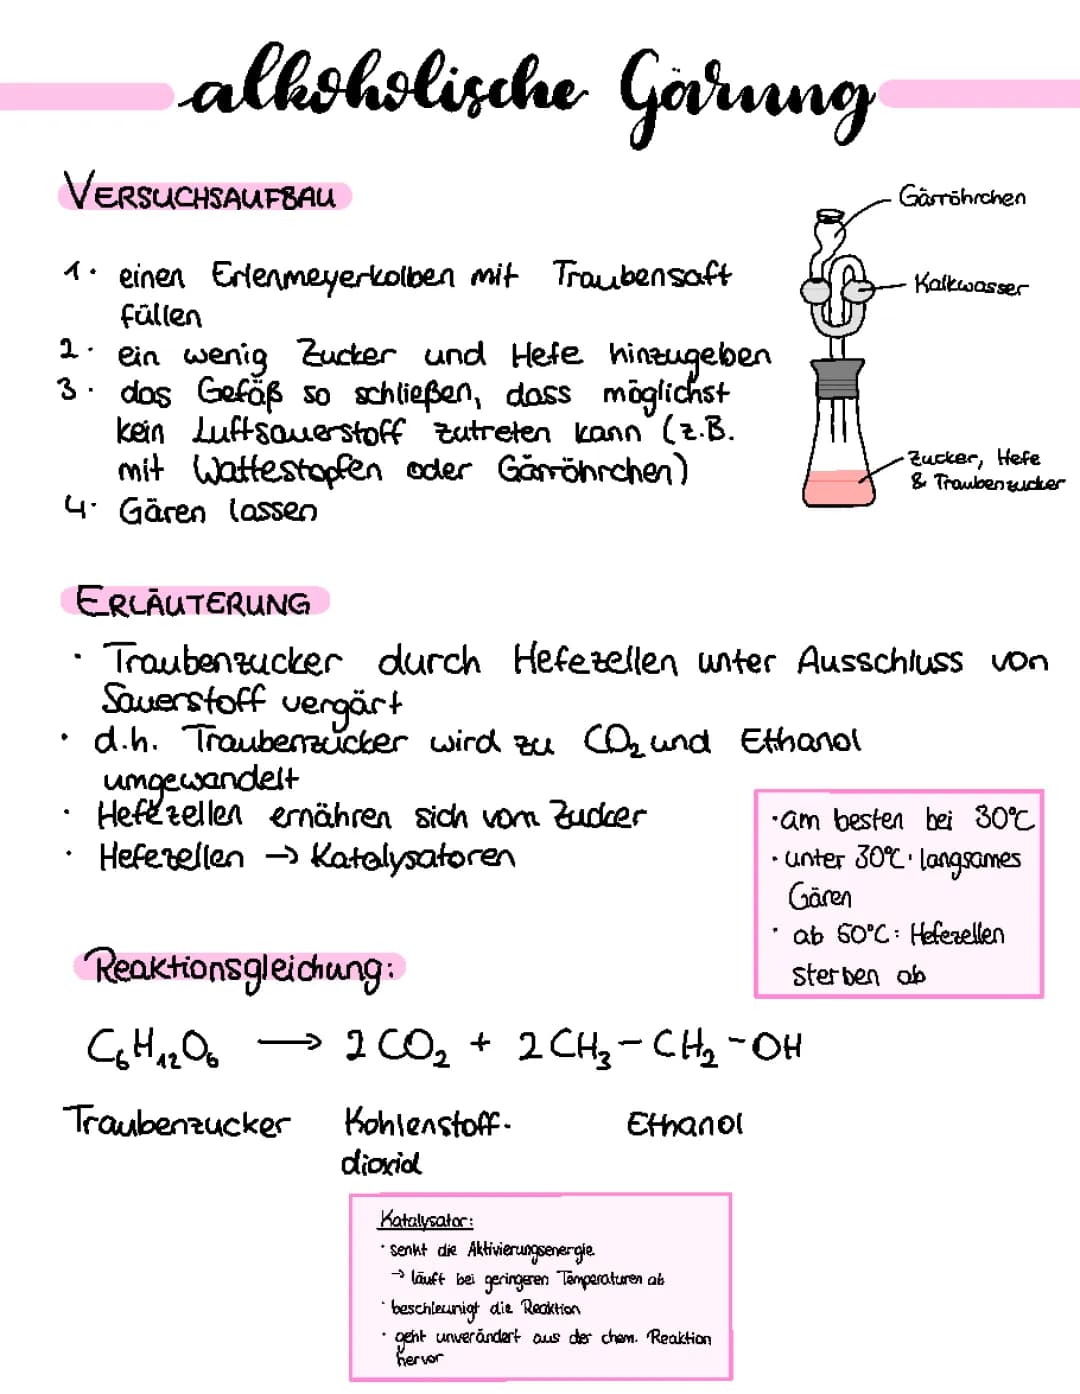 alkoholische Gärung
VERSUCHSAUFBAU
Gärröhrchen
Kalkwasser
Zucker, Hefe
& Traubenzucker
1. einen Erlenmeyerkolben mit Traubensaft
füllen
2. ein wenig Zucker und Hefe hinzugeben
3. das Gefäß so schließen, dass möglichst
kein Luftsauerstoff zutreten kann (z.B.
mit Wattestopfen oder Gärröhrchen)
4. Gären lassen
ERLÄUTERUNG
· Traubenzucker durch Hefezellen unter Ausschluss von
Sauerstoff vergärt
· d.h. Traubenzucker wird zu CO₂ und Ethanol
umgewandelt
· Hefezellen ernähren sich vom Zucker
· Hefezellen → Katalysatoren
· am besten bei 30°C
· unter 30°C: langsames
Gären
· ab 60°C: Hefezellen
sterben ab
Reaktionsgleichung:
C₆H₁₂O₆ → 2 CO₂ + 2 CH₃-CH₂-OH
Traubenzucker Kohlenstoff- Ethanol
dioxid
Katalysator:
· senkt die Aktivierungsenergie
→ läuft bei geringeren Temperaturen ab
· beschleunigt die Reaktion
· geht unverändert aus der chem. Reaktion
hervor